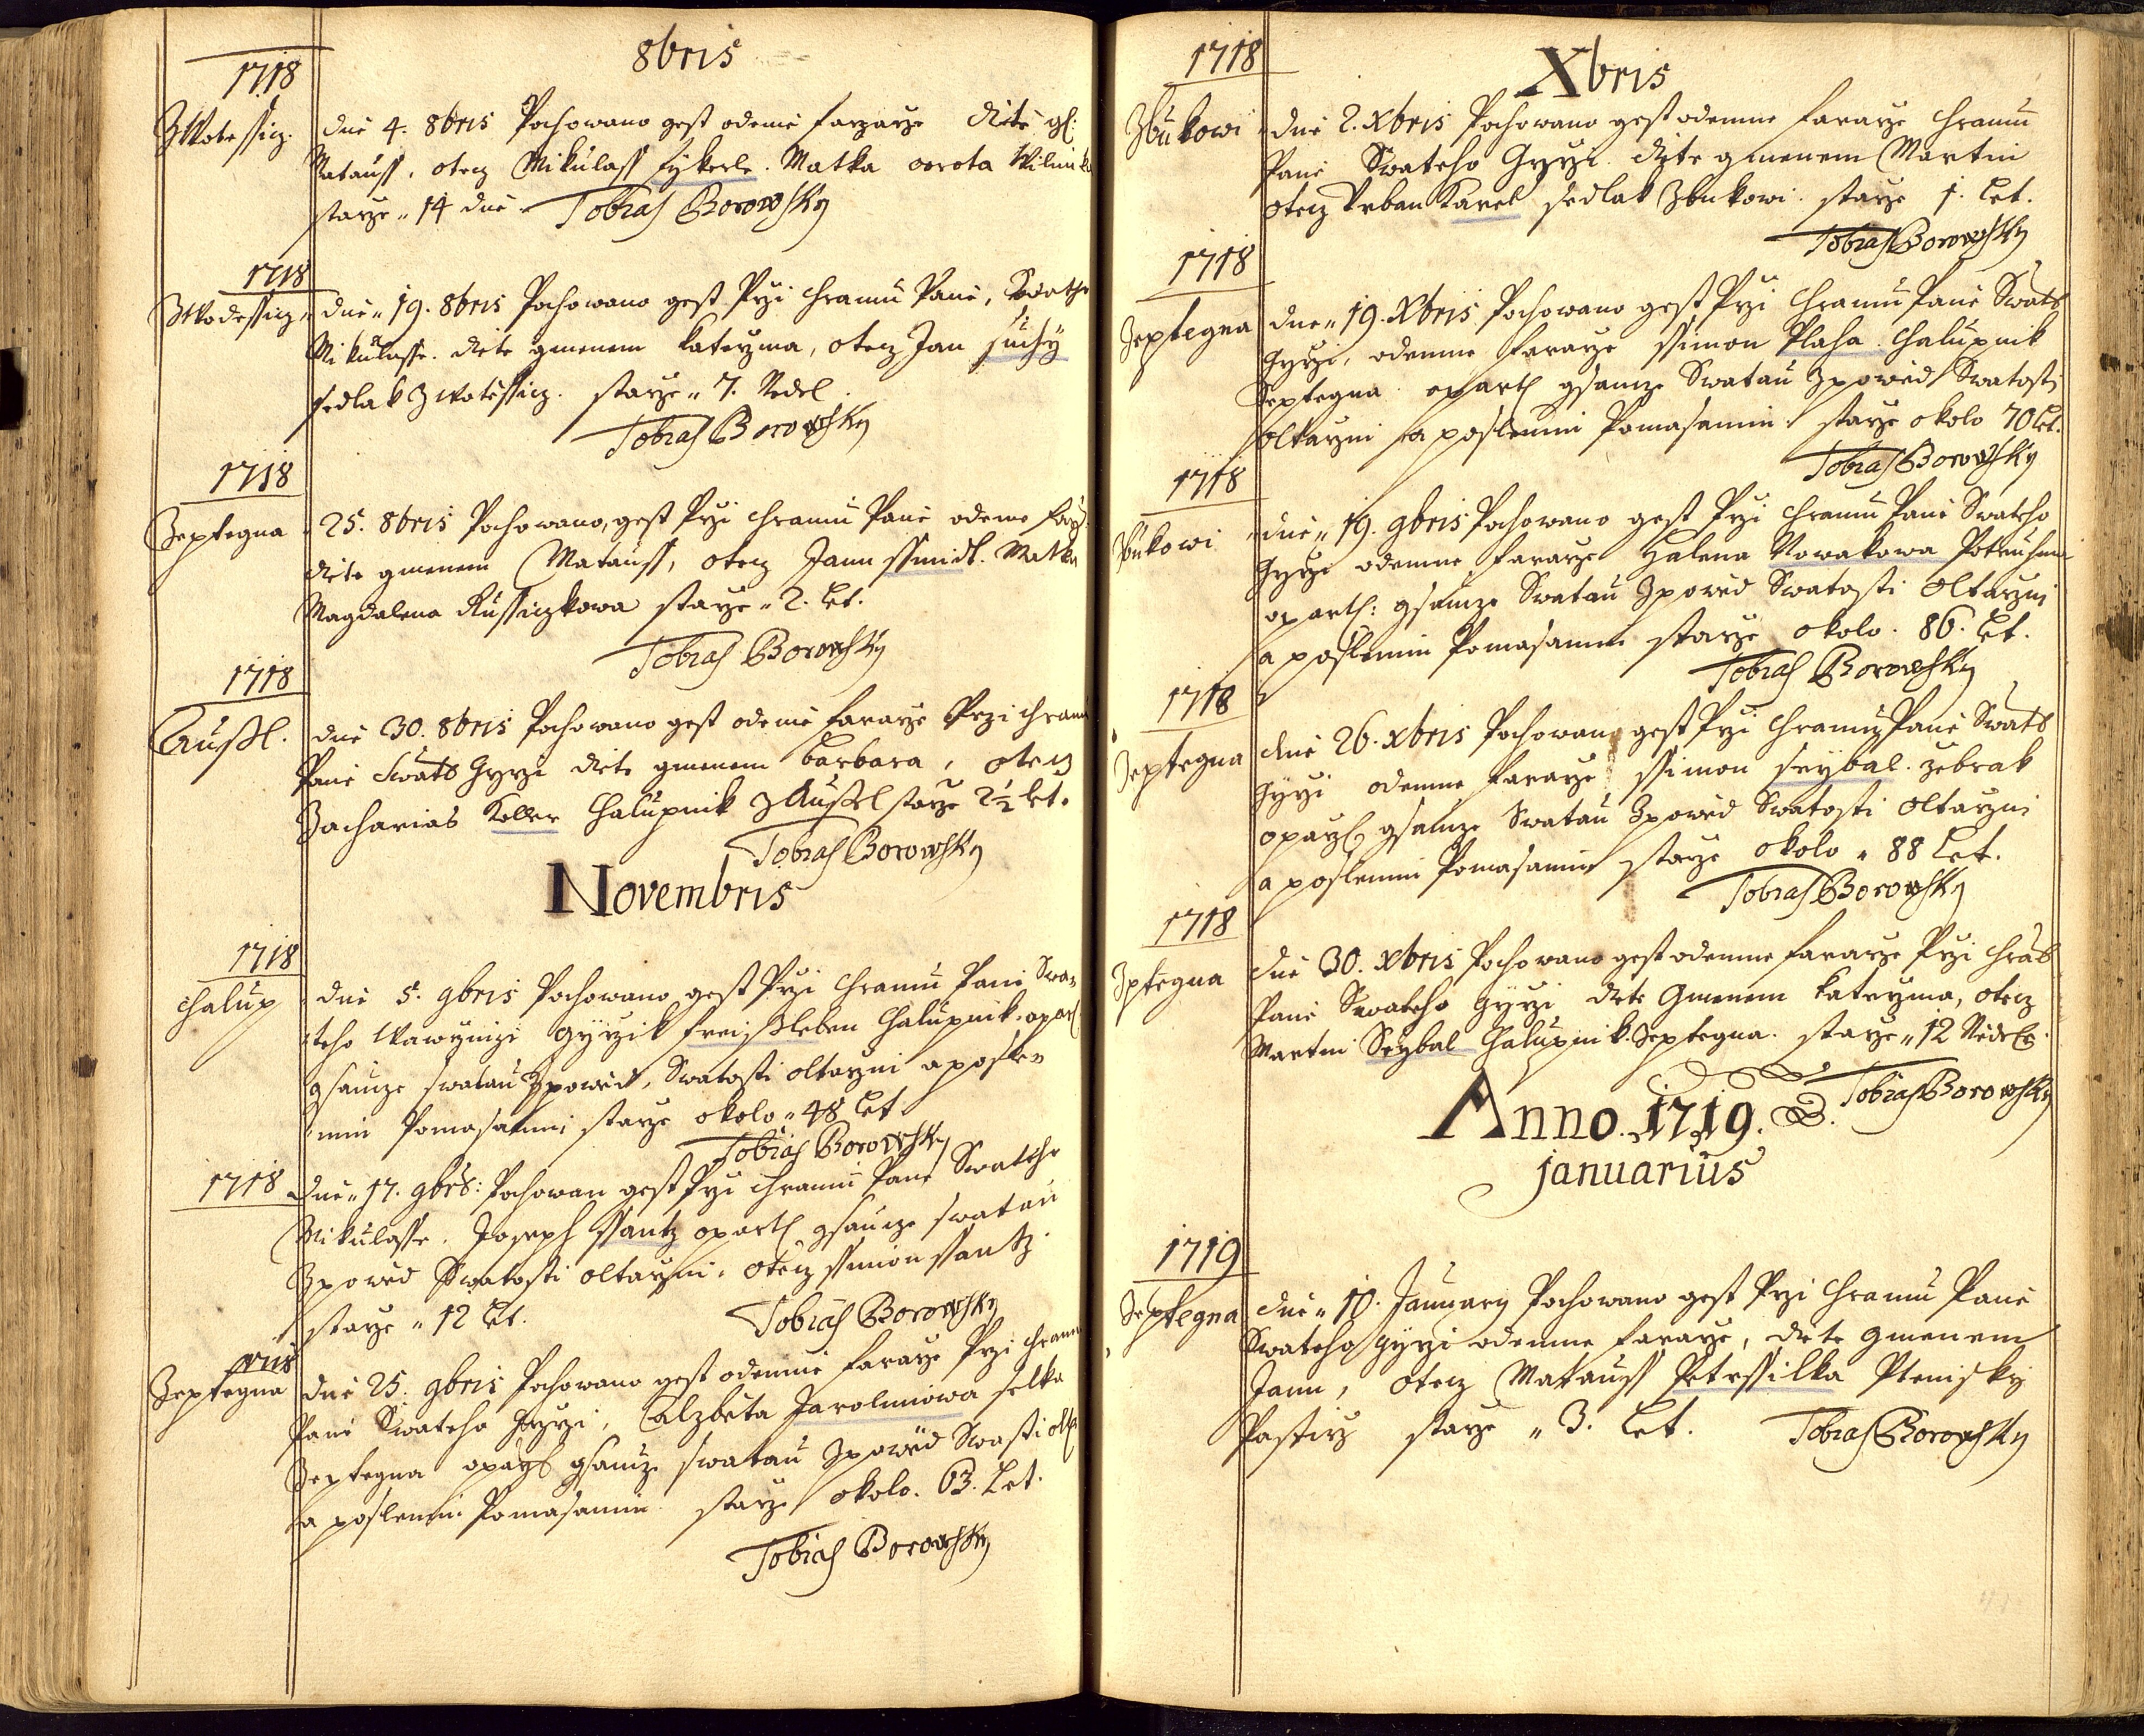 8bris
1718
ZWotessicz. dne 4. 8bris Pochowano gest odemě farzarze Ditě gl:
Matauss, otecz Mikulass sykerle. Matka dorota
starze „ 14 dne. Tobias Borowsky
1718
ZWodessicz. dne „ 19. 8bris Pochowano gest Przi Chramu Pane, Swateho
Mikulasse. dite gmenem Katerzina, otecz Jan suchy
sedlak z Wotessicz. starze „ 7. Nedel
Tobias Borowsky
1718
Zeptegna 25. 8bris Pochowano, gest Przi Chramu Pane odeme farz:
dite gmenem Matauss, otecz Jann ssmidt. Matka
Magdalena Russiczkowa starze „ 2. let.
Tobias Borowsky
1718
Aussl. dne 30. 8bris Pochowano gest odemě fararze Przi Chramu
Pane Swate Girzi dite gmenem barbara, otecz
Zacharias Koller Chalupnik z Aussel starze 2½ let.
Tobias Borowsky
Novembris
1718
Chalup dne 5. 9bris Pochowano gest Przi Chramu Pane Swa„
teho Wawrzinze Girzik freissleben Chalupnik. opatr:
gsaucze swatau Zpowěd, Swatosti oltarzni a posle„
nim Pomasanim starze okolo „ 48 let
Tobias Borowsky
1718 dne „ 17. 9bris: Pochowan gest Przi Chramu Pane Swateho
Mikulasse. Joseph ssantz opatrz gsaucze swatau
Zpowěd Swatosti oltarzni. otecz ssimon ssantz.
starze „ 12 let.
Tobias Borowsky
1718
Zeptegna dne 25. 9bris Pochowano gest odemně fararze Przi Chramu
Pane Swateho Girzi, Alzběta Jarolimowa selka
Zeptegna opatrz gsaucze swatau Zpowěd Swatosti olta
a poslenim Pomasanim starze okolo. 63. Let.
Tobias Borowsky
Xbris
1718
Zbukowi dne 2. Xbris Pochowano gest odemne fararze Chramu
Pane Swateho Girzi. dite gmenem Martin
otecz Vrban Karel sedlak Zbukowi. starze 1. let.
Tobias Borowsky
1718
Zeptegna dne „ 19. Xbris Pochowano gest Przi Chramu Pane Swate
Girzi, odemne fararze ssimon Plaha. Chalupnik
Zeptegna opatrz gsaucze Swatau Zpowěd Swatosti
oltarzni a poslenim Pomasanim starze okolo 70 let.
Tobias Borowsky
1718
Zbukowi dne „ 19. 9bris Pochowano gest Przi Chramu Pane Swateho
Girze odemne fararze Halena Nowakowa
opatrz: gsaucze Swatau Zpowěd Swatosti Oltarzni
a poslenim Pomasanim starze okolo. 86. let.
Tobias Borowsky
1718
Zeptegna dne 26. xbris Pochowano gest Przi Chramu Pane Swate
Girzi odemne fararze ssimon seybal. zebrak
opatrz gsaucze Swatau Zpowěd Swatosti oltarzni
a poslenim Pomasanim starze okolo „ 88 let.
Tobias Borowsky
1718
Zptegna dne 30. xbris Pochowano gest odemne fararze Przi Chra
Pane Swateho Girzi dite Gmenem Katerzina, otecz
Martin Seybal Chalupnik. Zeptegna. starze „ 12 Nedele.
Tobias Borowsky
Anno. 1719.
januarius
1719
Zeptegna dne „ 10. January Pochowano gest Przi Chramu Pane
Swateho Girzi odemne fararze, dite Gmenem
Jann, Otecz Matauss Petrssilka Ptenisky
Pastirz starze „ 3. let. Tobias Borowsky